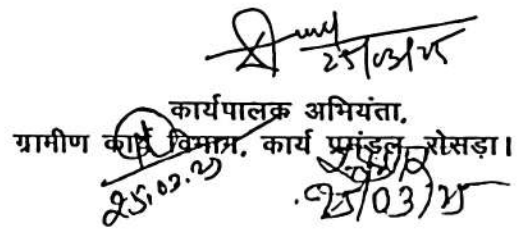 25/03/25
कार्यपालक अभियंता.
ग्रामीण कार्य विभाग. कार्य प्रमंडल, रोसड़ा।
25.03.25
25/03/25